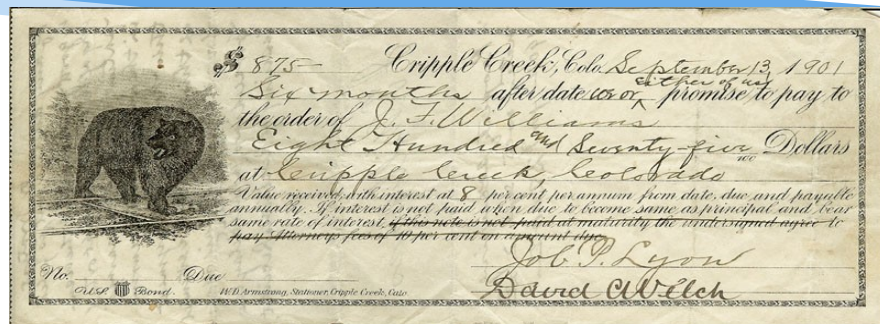 $ 875 — Cripple Creek, Colo. September 13, 1901
either of us
Six months after date we or promise to pay to
the order of J. F. Williams
Eight Hundred and Seventy-five no/100 Dollars
at Cripple Creek, Colorado
Value received, with interest at 8 per cent per annum from date, due and payable
annually. If interest is not paid when due to become same as principal and bear
same rate of interest, if this note is not paid at maturity the undersigned agree to
pay Attorneys fees of 10 per cent on amount due.
Job P. Lyon
No. Due
David C Welch
U.S.L. Bond. W.D. Armstrong, Stationer, Cripple Creek, Colo.